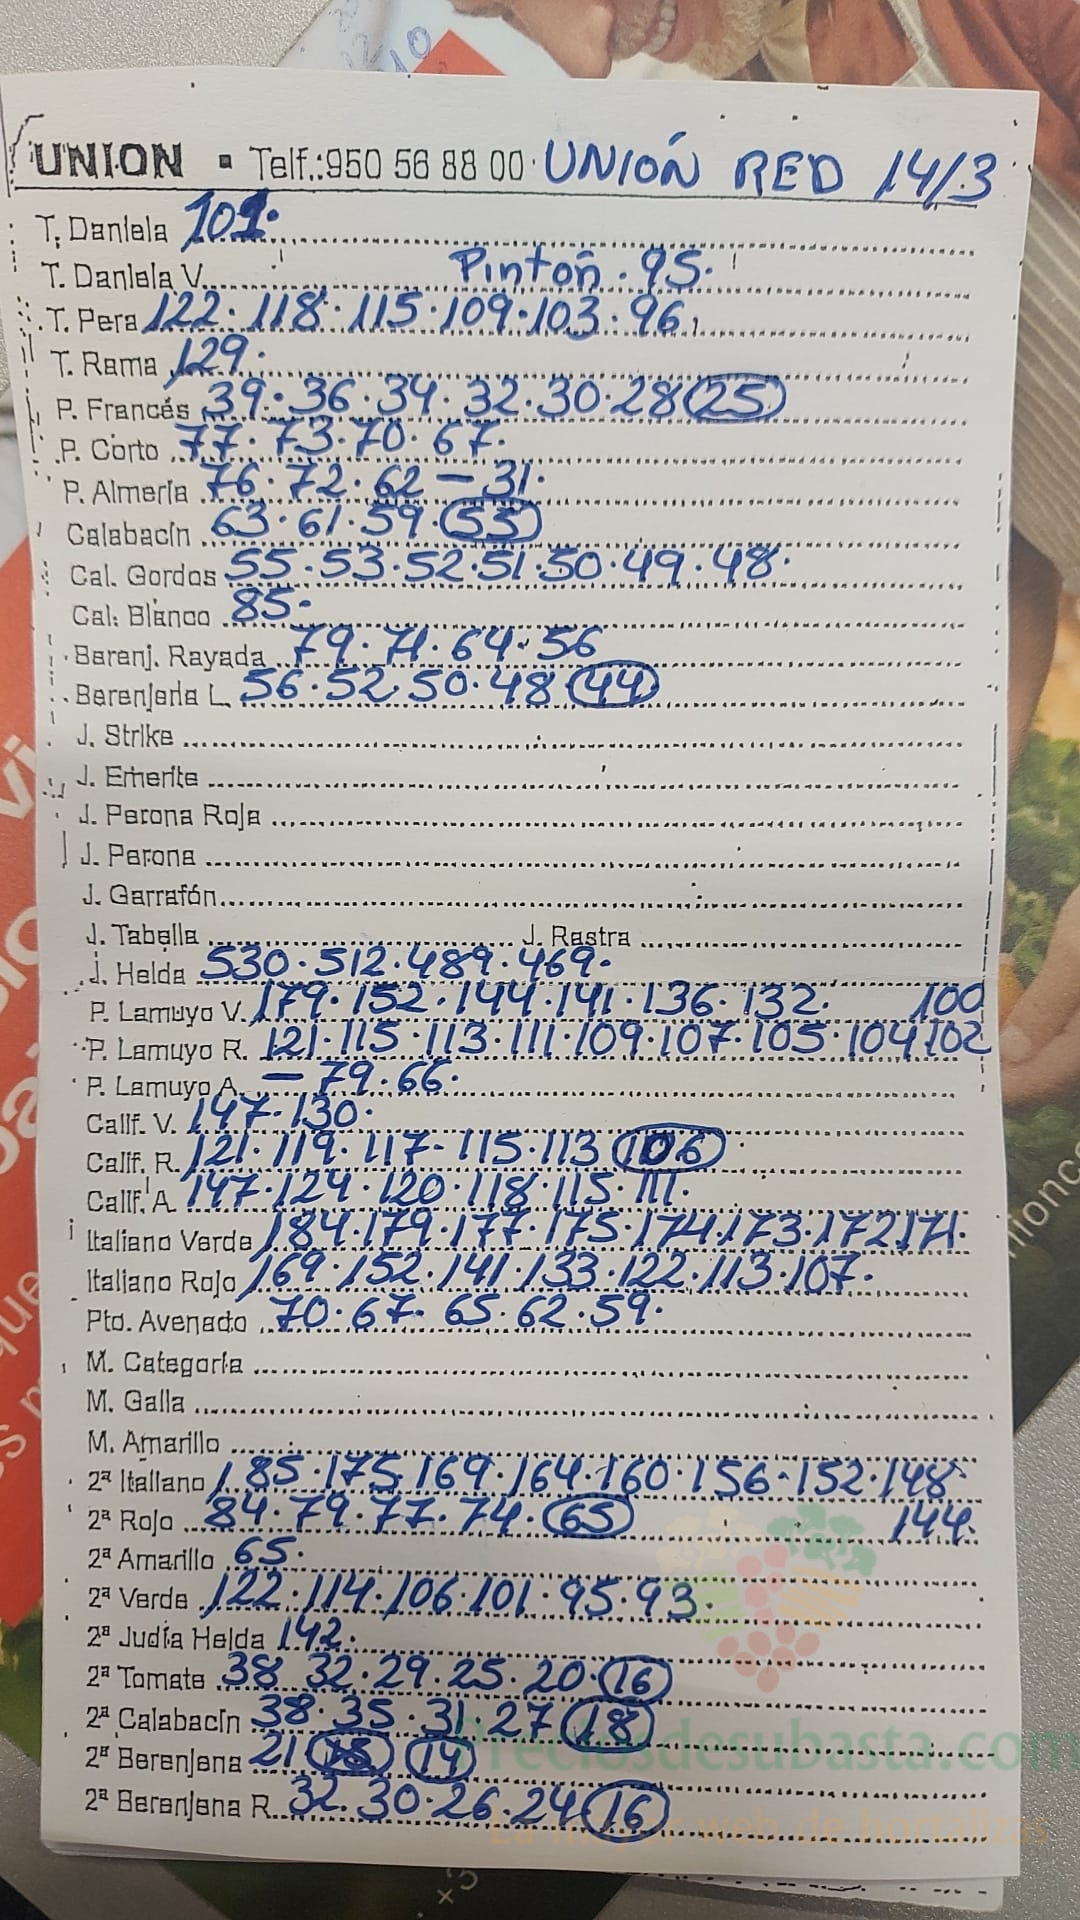 UNION ▪ Telf.:950 56 88 00 · UNIÓN RED 14/3
T. Daniela 101.
T. Daniela V. Pintoñ . 95.
T. Pera 122 . 118 . 115 . 109 . 103 . 96
T. Rama 129.
P. Francés 39 . 36 . 34 . 32 . 30 . 28 (25)
P. Corto 77 . 73 . 70 . 67.
P. Almería 76 . 72 . 62 — 31.
Calabacín 63 . 61 . 59 . (55)
Cal. Gordos 55 . 53 . 52 . 51 . 50 . 49 . 48.
Cal. Blanco 85.
Berenj. Rayada 79 . 71 . 64 . 56
Berenjena L. 56 . 52 . 50 . 48 (44)
J. Strike
J. Emerite
J. Perona Roja
J. Perona
J. Garrafón
J. Tabella J. Rastra
J. Helda 530 . 512 . 489 . 469.
P. Lamuyo V. 179 . 152 . 144 . 141 . 136 . 132. 100
P. Lamuyo R. 121 . 115 . 113 . 111 . 109 . 107 . 105 . 104 102
P. Lamuyo A. — 79 . 66.
Calif. V. 147 . 130.
Calif. R. 121 . 119 . 117 - 115 . 113 (106)
Calif. A. 147 . 124 . 120 . 118 . 115 . 111.
Italiano Verde 184 . 179 . 177 . 175 . 174 . 173 . 172 171.
Italiano Rojo 169 . 152 . 141 . 133 . 122 . 113 . 107.
Pto. Avenado 70 . 67 . 65 . 62 . 59.
M. Categoría
M. Galia
M. Amarillo
2ª Italiano 185 . 175 . 169 . 164 . 160 . 156 . 152 . 148
2ª Rojo 84 . 79 . 77 . 74 . (65) 144.
2ª Amarillo 65.
2ª Verde 122 . 114 . 106 . 101 . 95 . 93.
2ª Judía Helda 142.
2ª Tomate 38 32 . 29 . 25 . 20 . (16)
2ª Calabacín 38 . 35 . 31 . 27 (18)
2ª Berenjena 21 (14)
2ª Berenjena R. 32 . 30 . 26 . 24 (16)
Preciosdesubasta.com
La mejor web de hortalizas